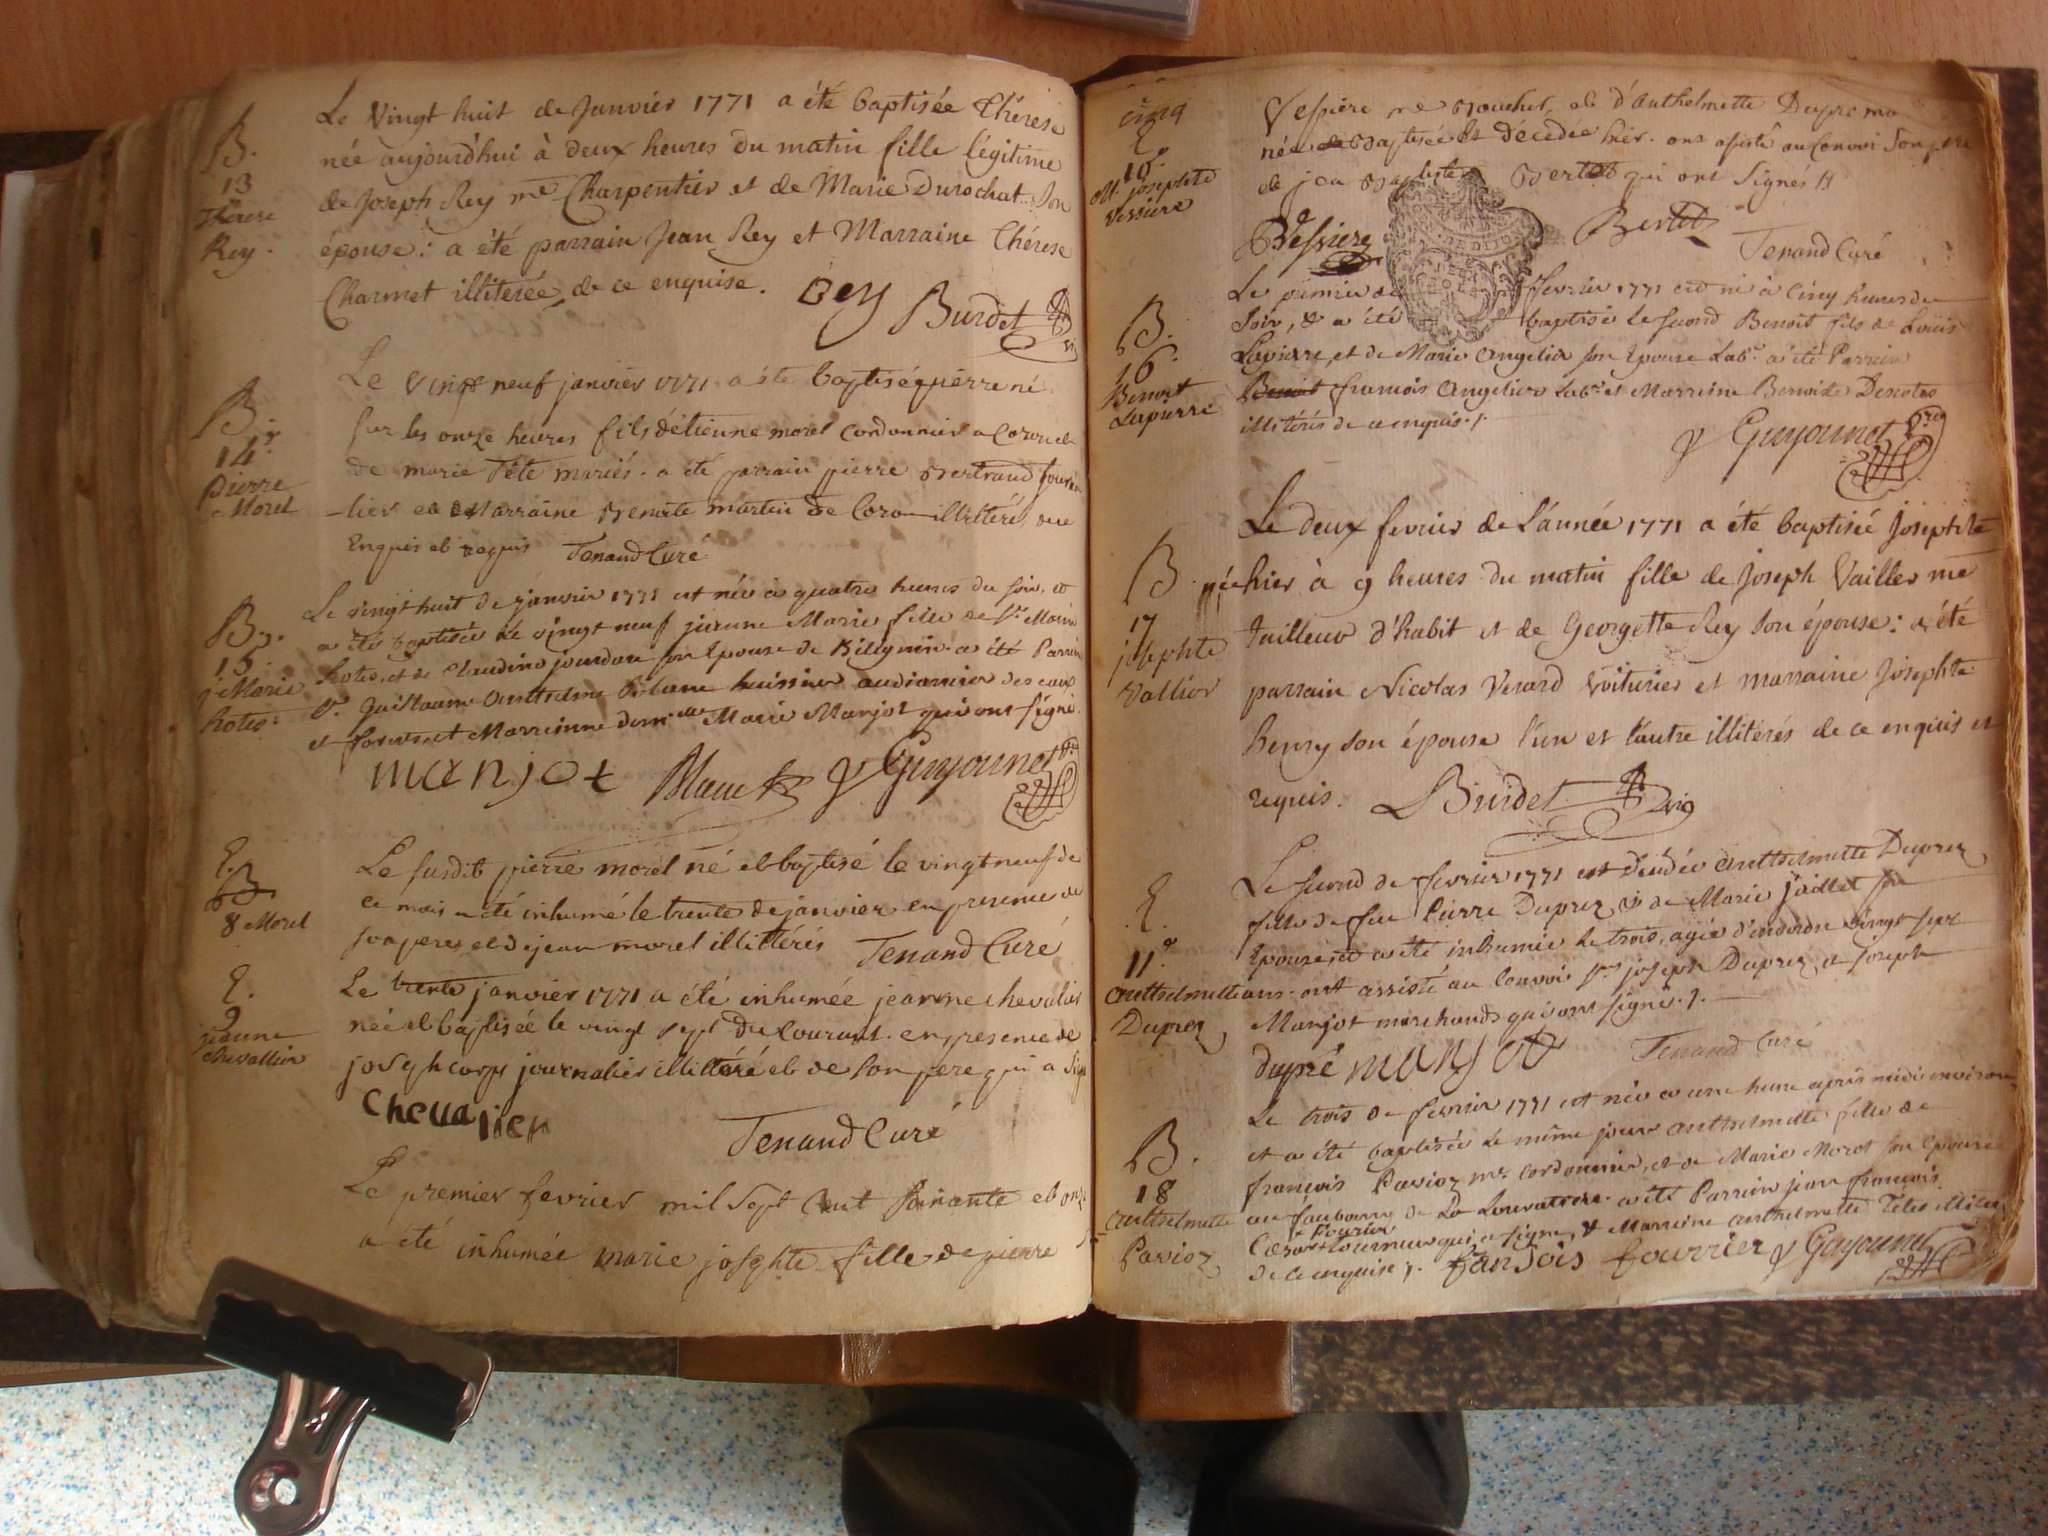 B.
13
Thérese
Rey.
Le vingt huit de Janvier 1771 a été baptisée Thérese
née aujourd'hui à deux heures du matin fille légitime
de Joseph Rey me Charpentier et de Marie Durochat Son
épouse: a été parrain Jean Rey et Marraine Thérese
Charmet illiterée de ce enquise. Rey Burdet
B.
14
pierre
Morel
Le vingt neuf janvier 1771 a été baptisé pierre né
sur les onze heures fils d'étienne morel cordonnier a
de marie Tête mariés. a été parrain pierre Bertrand journa
-lier et Marraine Benoite martin de illittérés de ce
Enquis et requis Tenand Curé
B.
15.
j. Marie
Le vingt huit de janvier 1771 est née à quatre heures du soir, et
a été baptisée le vingt neuf jeanne Marie fille de Sr
et de Claudine jourdan son Epouse de Billignin. a été Parrain
Sr. Guillaume Anthelme huissier audiancier des eaux
et forets et Marrainne demlle Marie Manjot qui ont signé.
manjot Guyounet
E.
8 Morel
Le susdit pierre morel né et baptisé le vingt neuf de
ce mois a été inhumé le trente de janvier en presence de
son pere, et de jean morel illittérés Tenand Curé
E.
9
jeanne
chevallier
Le trente janvier 1771 a été inhumée jeanne chevalier
née et baptisée le vingt sept du Courant. en presence de
joseph corps journalier illittéré et de son pere qui a signé
Chevalier Tenand Curé
Le premier fevrier mil sept Cent soixante et onze
a été inhumée marie josephte fille de pierre
cinq
E
10.
M. josephte
Vessiere
Vessiere me Boucher, et d'Anthelmette Dupre
née Baptisée et décedée hier. ont assisté au Convoi son pere
et jean Baptiste Bertet qui ont signés
Vessiere Bertet Tenand Curé
B.
16.
Benoit
Lapierre
Le premier de fevrier 1771 est né à Cinq heures du
soir, & a été baptisé le second Benoit fils de Louis
Lapierre, et de Marie Angelier son Epouse Labr. a été Parrain
Benoit francois Angelier Labr. et Marraine Benoite
illitérés de ce enquis.
Guyounet
B.
17
josephte
Vallier
Le deux fevrier de L'année 1771 a été baptisée Josephte
née hier à 9 heures du matin fille de Joseph Vailler me
tailleur d'habit et de Georgette Rey son épouse: a été
parrain Nicolas Verard Voiturier et marraine Josephte
Henry son épouse l'un et l'autre illitérés de ce enquis et
requis. Burdet
E.
11.
Anthelmette
Duprez
Le second de fevrier 1771 est décédée Anthelmette Duprez
fille de feu Pierre Duprez, & de Marie jaillet son
Epouse, et a été inhumée le trois, agée d'environ vingt sept
ans. ont assisté au Convoi Srs joseph Duprez, & joseph
Manjot marchands qui ont signé.
dupré manjot Tenand Curé
B.
18
Anthelmette
Pavioz
Le trois de fevrier 1771 est née a une heure après midi environ
et a été baptisée le même jour Anthelmette fille de
françois Pavioz me. cordonnier, et de Marie Morot son Epouse
au faubourg de La a été Parrain jean françois
fourier
qui a signé, & Marraine Anthelmette
de ce enquise. fransois fourrier Guyounet